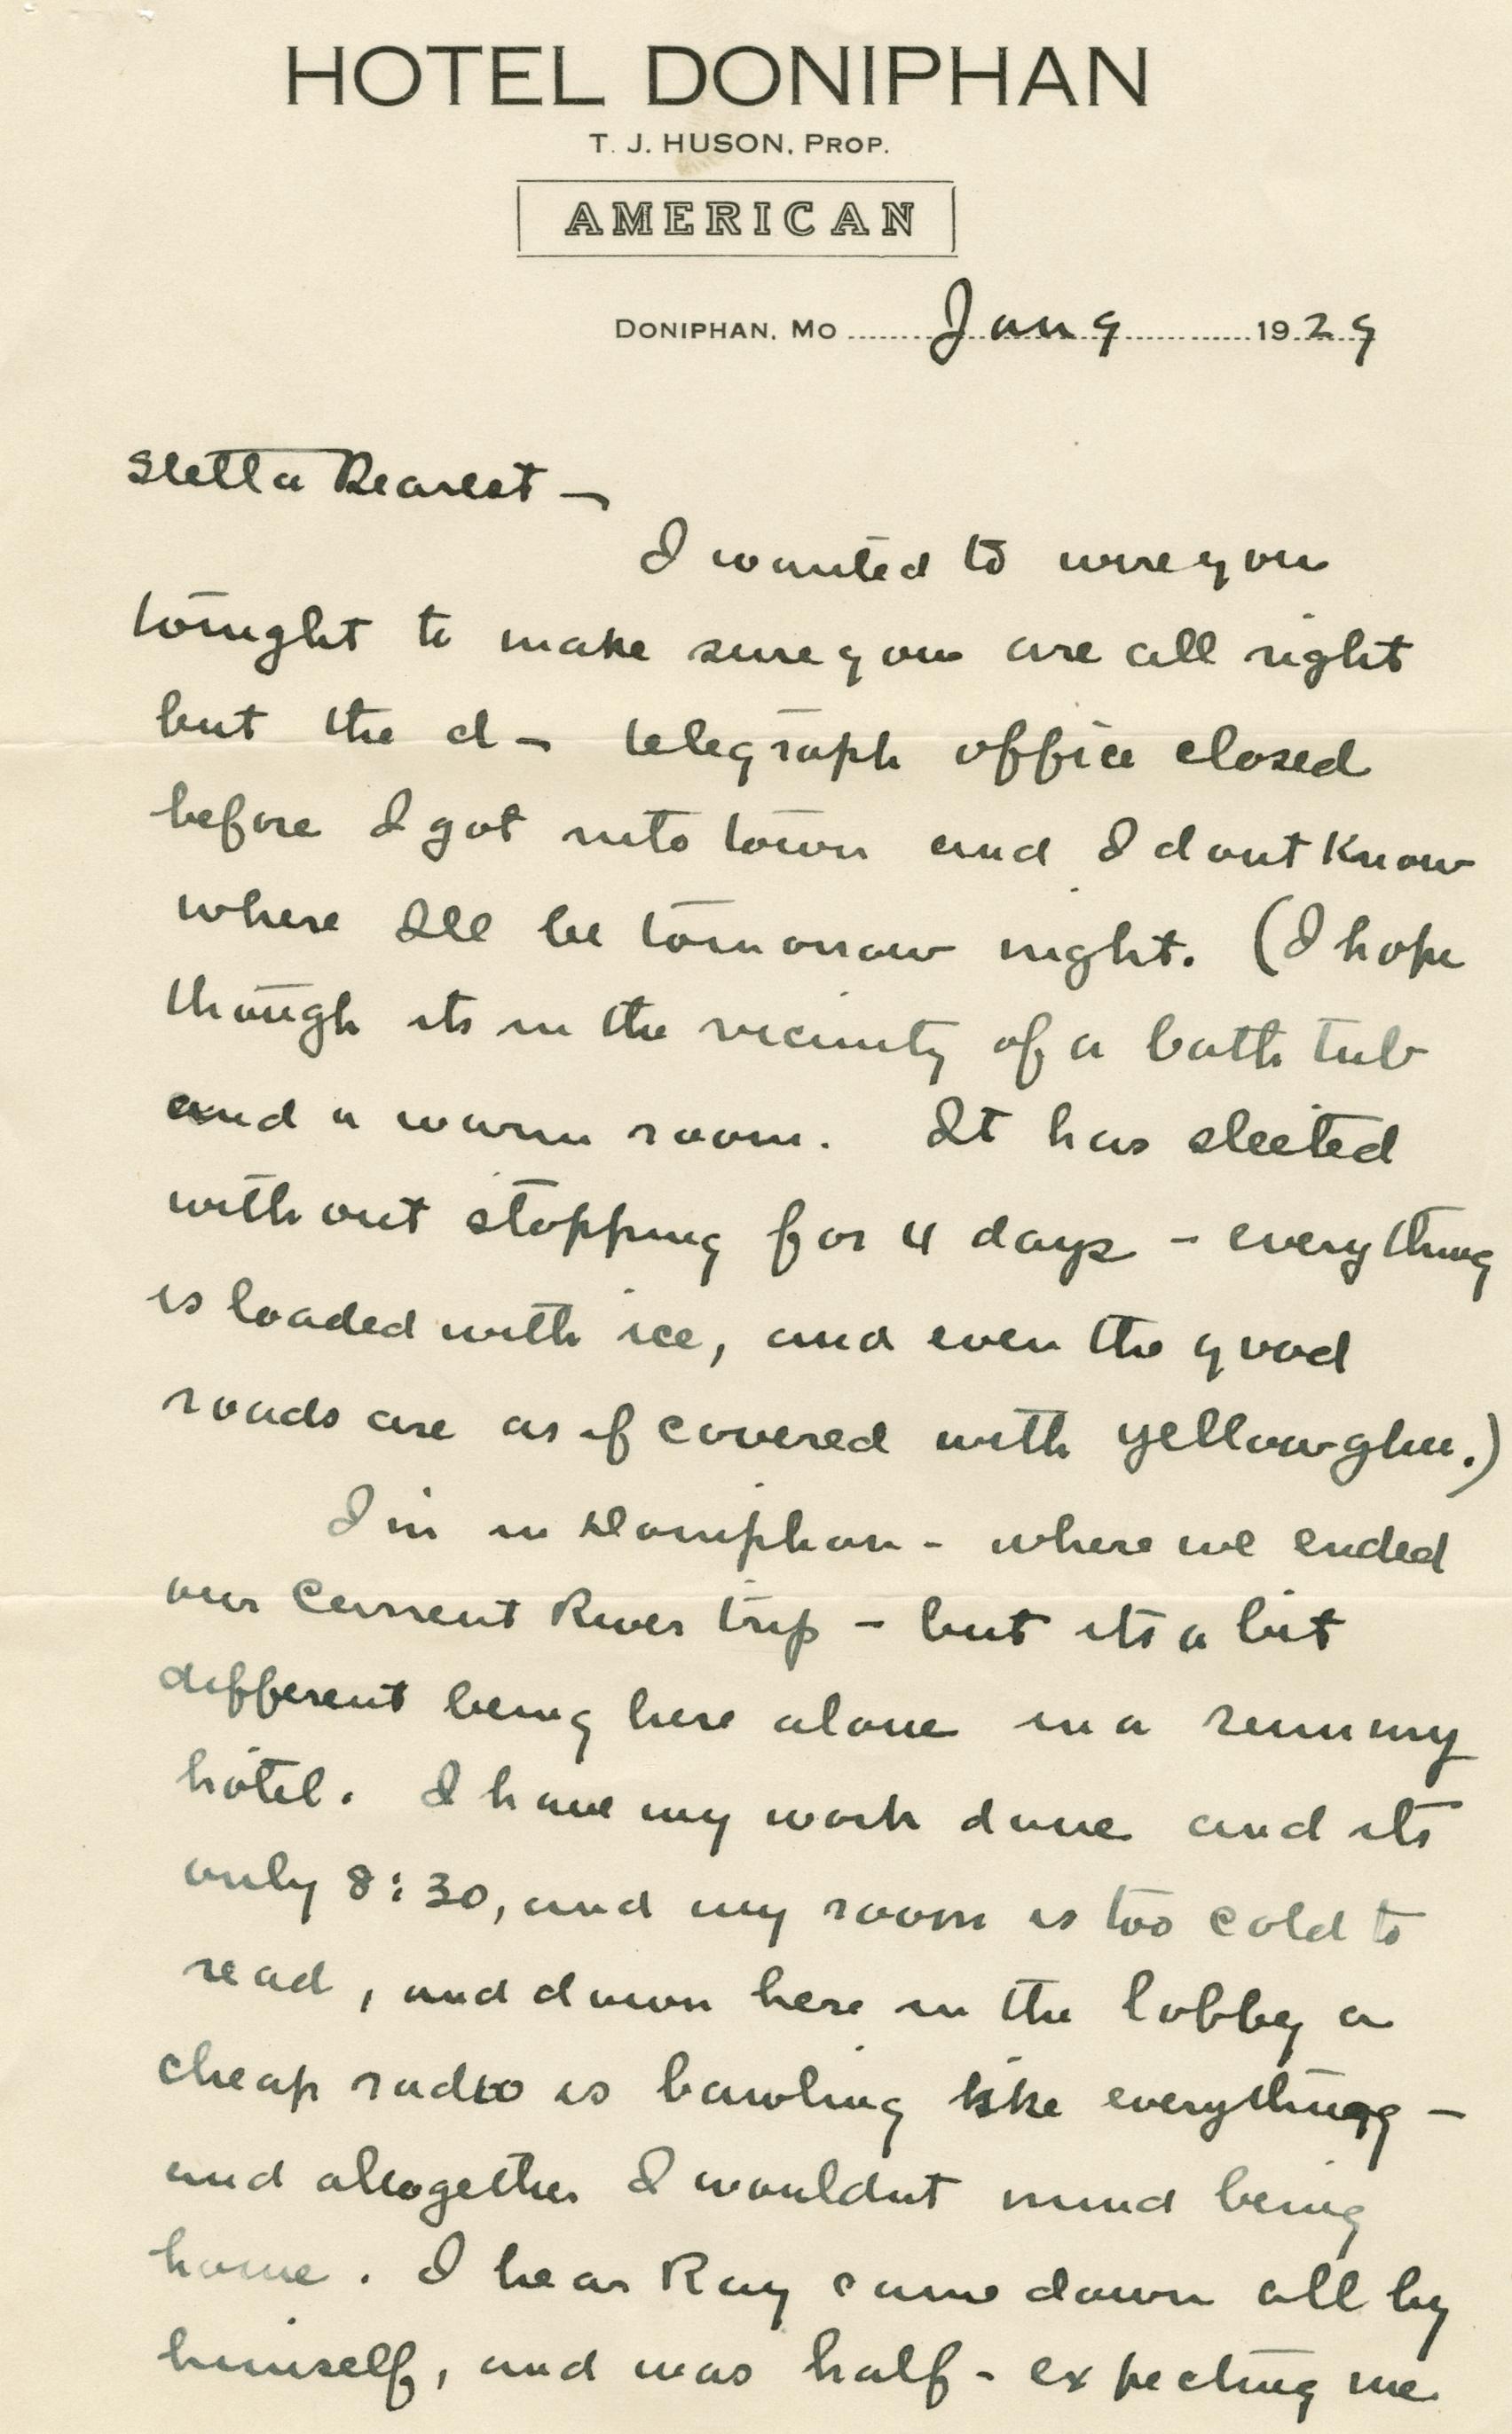 HOTEL DONIPHAN
T. J. HUSON, PROP.
AMERICAN
DONIPHAN, MO ........ Jan 9 ........ 1929
Stella Dearest —
I wanted to wire you
tonight to make sure you are all right
but the d— telegraph office closed
before I got into town and I dont know
where Ill be tomorrow night. (I hope
though its in the vicinity of a bath tub
and a warm room. It has sleeted
without stopping for 4 days - everything
is loaded with ice, and even the good
roads are as if covered with yellow glue.)
I'm in Doniphan - where we ended
our Current River trip - but its a bit
different being here alone in a rummy
hotel. I have my work done and its
only 8:30, and my room is too cold to
read, and down here in the lobby a
cheap radio is bawling like everything —
and altogether I wouldnt mind being
home. I hear Ray came down all by
himself, and was half-expecting me